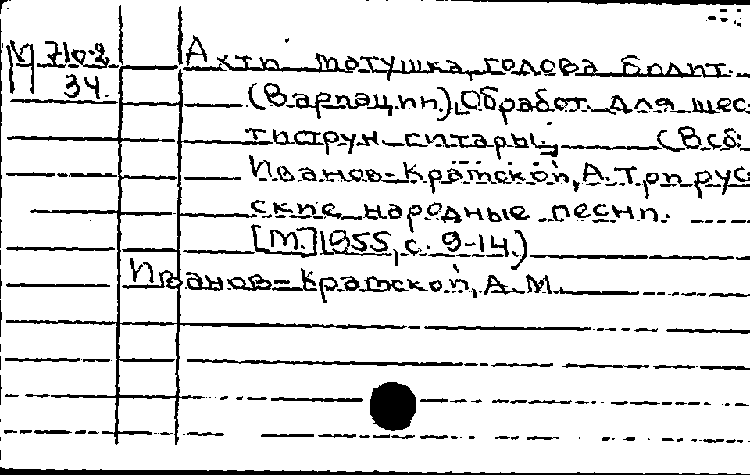 М 710-2
34.
Ах ты матушка, голова болит.
(Вариации). Обработ. для шес-
тиструн. гитары. (В сб:
Иванов-Крамской, А. Три рус-
ские народные песни.
[М.] 1955, с. 9-14.)
Иванов-Крамской, А.М.